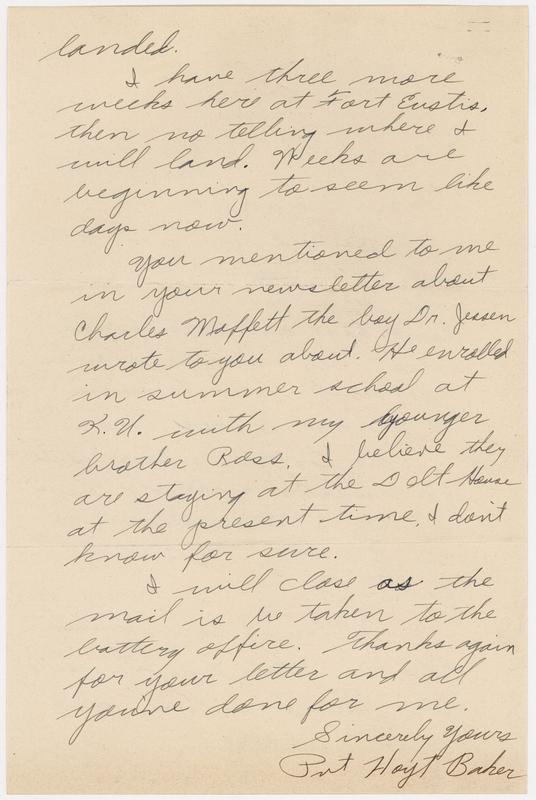 landed.
I have three more
weeks here at Fort Eustis,
then no telling where I
will land. Weeks are
beginning to seem like
days now.
You mentioned to me
in your newsletter about
Charles Moffett the boy Dr. Jessen
wrote to you about. He enrolled
in summer school at
K.U. with my younger
brother Ross. I believe they
are staying at the Delt House
at the present time, I don't
know for sure.
I will close as the
mail is be taken to the
battery office. Thanks again
for your letter and all
youve done for me.
Sincerely Yours
Pvt Hoyt Baker